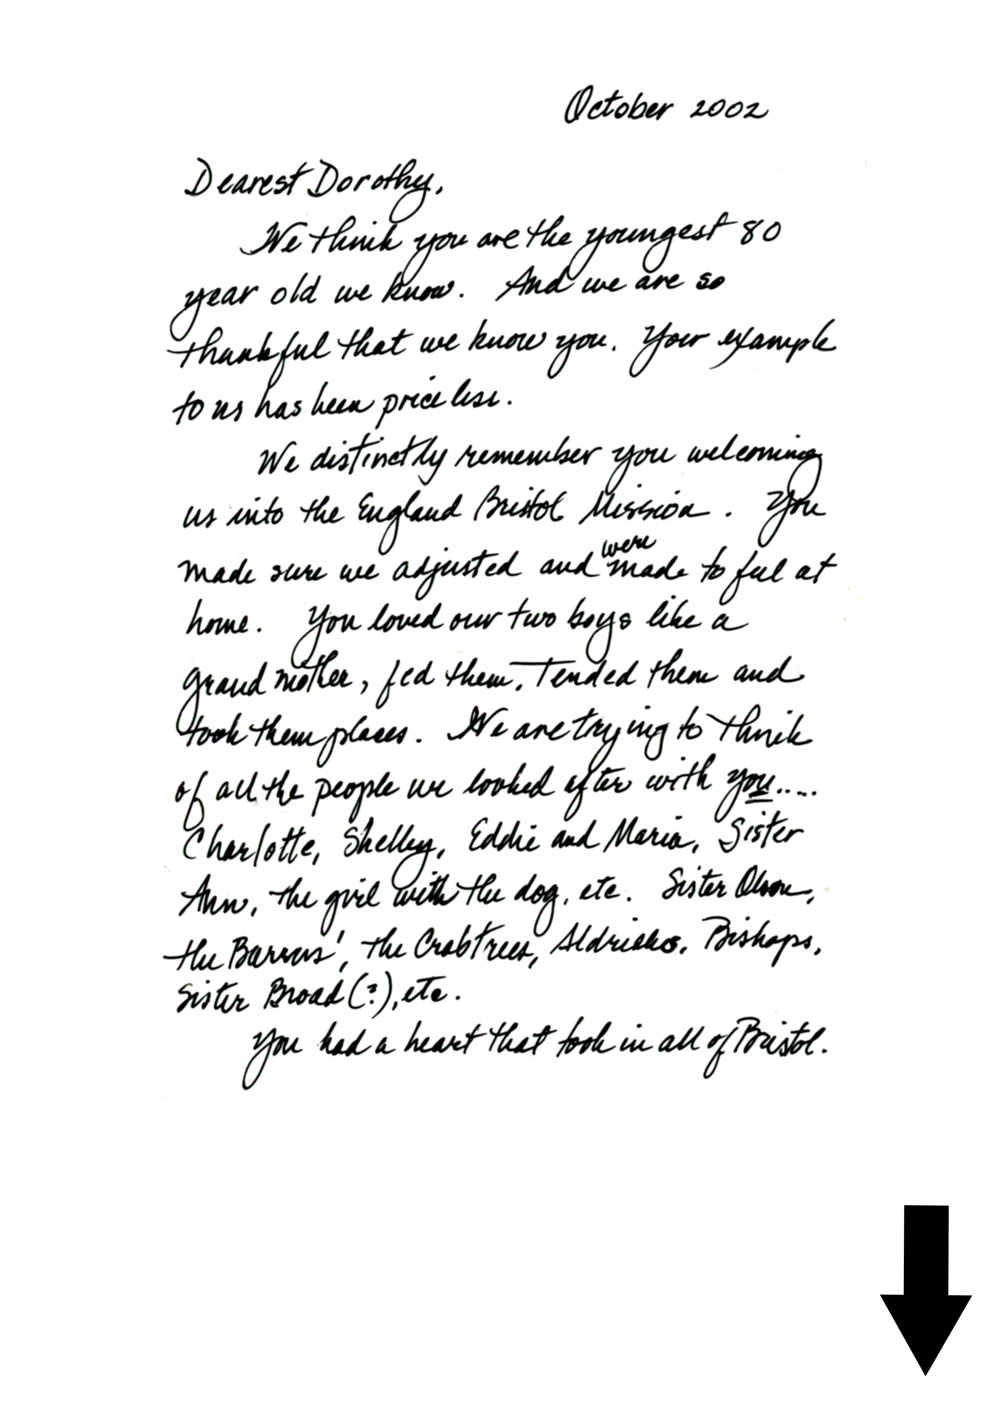 October 2002
Dearest Dorothy,
We think you are the youngest 80
year old we know. And we are so
thankful that we know you. Your example
to us has been priceless.
We distinctly remember you welcoming
us into the England Bristol Mission. You
made sure we adjusted and were made to feel at
home. You loved our two boys like a
grandmother, fed them, tended them and
took them places. We are trying to think
of all the people we looked after with you....
Charlotte, Shelley, Eddie and Maria, Sister
Ann, the girl with the dog, etc. Sister Olson,
the Barrus', the Crabtrees, Aldrichs, Bishops,
Sister Broad (?), etc.
You had a heart that took in all of Bristol.